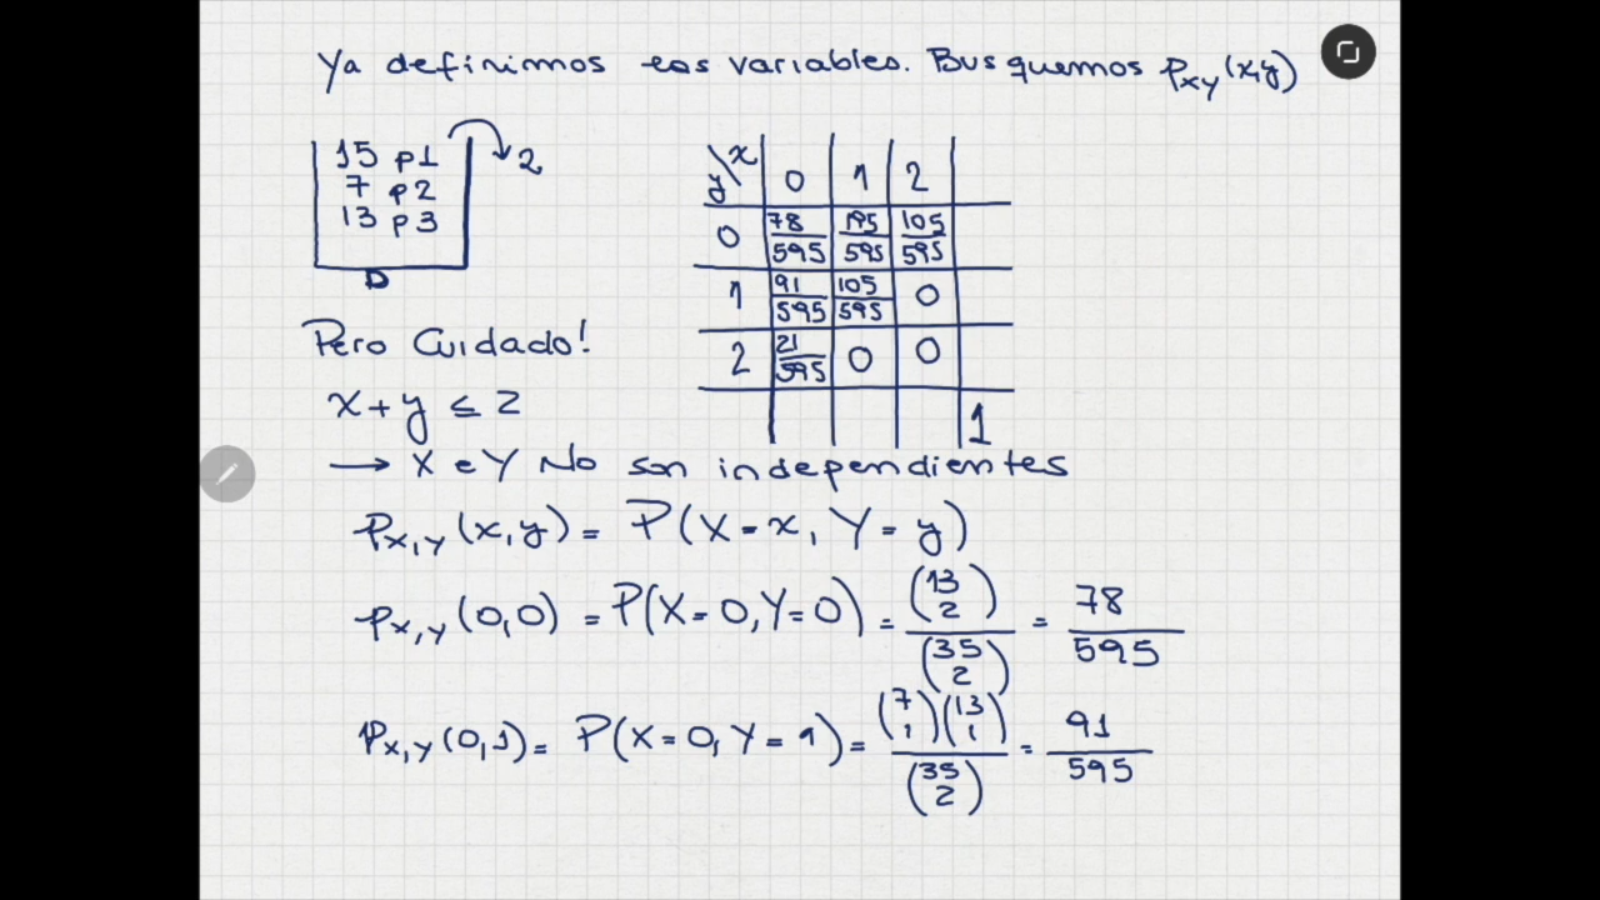 Ya definimos las variables. Busquemos P_XY(x,y)
15 p1
7 p2
13 p3
2
D
y\x 0 1 2
0 78/595 195/595 105/595
1 91/595 105/595 0
2 21/595 0 0
1
Pero Cuidado!
x+y ≤ 2
→ X e Y No son independientes
P_X,Y(x,y) = P(X=x, Y=y)
P_X,Y(0,0) = P(X=0,Y=0) = (13 2)/(35 2) = 78/595
P_X,Y(0,1) = P(X=0,Y=1) = (7 1)(13 1)/(35 2) = 91/595